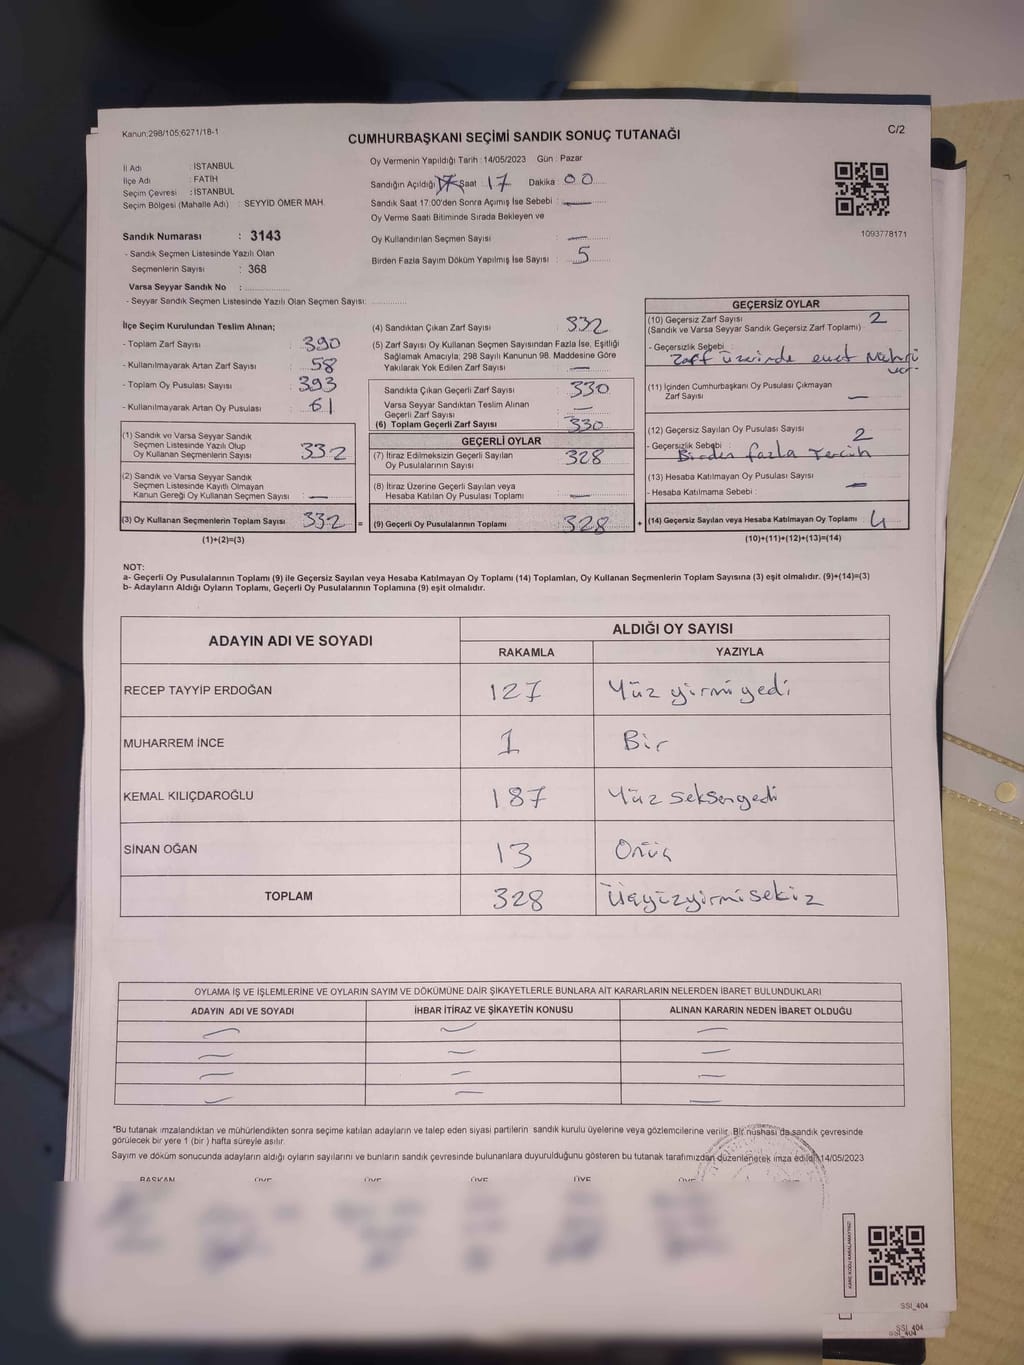 Kanun:298/105;6271/18-1
CUMHURBAŞKANI SEÇİMİ SANDIK SONUÇ TUTANAĞI
C/2
İl Adı : İSTANBUL
İlçe Adı : FATİH
Seçim Çevresi : İSTANBUL
Seçim Bölgesi (Mahalle Adı) : SEYYİD ÖMER MAH.
Oy Vermenin Yapıldığı Tarih : 14/05/2023 Gün : Pazar
Sandığın Açıldığı Saat 17 Dakika 00
Sandık Saat 17:00'den Sonra Açımış İse Sebebi : —
Oy Verme Saati Bitiminde Sırada Bekleyen ve
Oy Kullandırılan Seçmen Sayısı : —
Birden Fazla Sayım Döküm Yapılmış İse Sayısı : 5
1093778171
Sandık Numarası : 3143
- Sandık Seçmen Listesinde Yazılı Olan
Seçmenlerin Sayısı : 368
Varsa Seyyar Sandık No :
- Seyyar Sandık Seçmen Listesinde Yazılı Olan Seçmen Sayısı:
İlçe Seçim Kurulundan Teslim Alınan;
- Toplam Zarf Sayısı : 390
- Kullanılmayarak Artan Zarf Sayısı : 58
- Toplam Oy Pusulası Sayısı : 393
- Kullanılmayarak Artan Oy Pusulası : 61
(1) Sandık ve Varsa Seyyar Sandık
Seçmen Listesinde Yazılı Olup
Oy Kullanan Seçmenlerin Sayısı : 332
(2) Sandık ve Varsa Seyyar Sandık
Seçmen Listesinde Kayıtlı Olmayan
Kanun Gereği Oy Kullanan Seçmen Sayısı : —
(3) Oy Kullanan Seçmenlerin Toplam Sayısı 332 =
(1)+(2)=(3)
(4) Sandıktan Çıkan Zarf Sayısı : 332
(5) Zarf Sayısı Oy Kullanan Seçmen Sayısından Fazla İse, Eşitliği
Sağlamak Amacıyla; 298 Sayılı Kanunun 98. Maddesine Göre
Yakılarak Yok Edilen Zarf Sayısı : —
Sandıkta Çıkan Geçerli Zarf Sayısı : 330
Varsa Seyyar Sandıktan Teslim Alınan
Geçerli Zarf Sayısı : —
(6) Toplam Geçerli Zarf Sayısı : 330
GEÇERLİ OYLAR
(7) İtiraz Edilmeksizin Geçerli Sayılan
Oy Pusulalarının Sayısı : 328
(8) İtiraz Üzerine Geçerli Sayılan veya
Hesaba Katılan Oy Pusulası Toplamı : —
(9) Geçerli Oy Pusulalarının Toplamı 328 +
GEÇERSİZ OYLAR
(10) Geçersiz Zarf Sayısı 2
(Sandık ve Varsa Seyyar Sandık Geçersiz Zarf Toplamı) :
- Geçersizlik Sebebi :
Zarf üzerinde evet Mührü
var.
(11) İçinden Cumhurbaşkanı Oy Pusulası Çıkmayan
Zarf Sayısı : —
(12) Geçersiz Sayılan Oy Pusulası Sayısı : 2
- Geçersizlik Sebebi :
Birden fazla Tercih
(13) Hesaba Katılmayan Oy Pusulası Sayısı : —
- Hesaba Katılmama Sebebi :
(14) Geçersiz Sayılan veya Hesaba Katılmayan Oy Toplamı : 4
(10)+(11)+(12)+(13)=(14)
NOT:
a- Geçerli Oy Pusulalarının Toplamı (9) ile Geçersiz Sayılan veya Hesaba Katılmayan Oy Toplamı (14) Toplamları, Oy Kullanan Seçmenlerin Toplam Sayısına (3) eşit olmalıdır. (9)+(14)=(3)
b- Adayların Aldığı Oyların Toplamı, Geçerli Oy Pusulalarının Toplamına (9) eşit olmalıdır.
ADAYIN ADI VE SOYADI
ALDIĞI OY SAYISI
RAKAMLA YAZIYLA
RECEP TAYYİP ERDOĞAN 127 Yüz yirmi yedi
MUHARREM İNCE 1 Bir
KEMAL KILIÇDAROĞLU 187 Yüz seksenyedi
SİNAN OĞAN 13 Onüç
TOPLAM 328 Üçyüzyirmisekiz
OYLAMA İŞ VE İŞLEMLERİNE VE OYLARIN SAYIM VE DÖKÜMÜNE DAİR ŞİKAYETLERLE BUNLARA AİT KARARLARIN NELERDEN İBARET BULUNDUKLARI
ADAYIN ADI VE SOYADI İHBAR İTİRAZ VE ŞİKAYETİN KONUSU ALINAN KARARIN NEDEN İBARET OLDUĞU
— — —
— — —
— — —
— — —
*Bu tutanak imzalandıktan ve mühürlendikten sonra seçime katılan adayların ve talep eden siyasi partilerin sandık kurulu üyelerine veya gözlemcilerine verilir. Bir nüshası da sandık çevresinde
görülecek bir yere 1 (bir ) hafta süreyle asılır.
Sayım ve döküm sonucunda adayların aldığı oyların sayılarını ve bunların sandık çevresinde bulunanlara duyurulduğunu gösteren bu tutanak tarafımızdan düzenlenerek imza edildi. 14/05/2023
BAŞKAN ÜYE ÜYE ÜYE ÜYE ÜYE
SSI_404
SSI_404
SSI_404